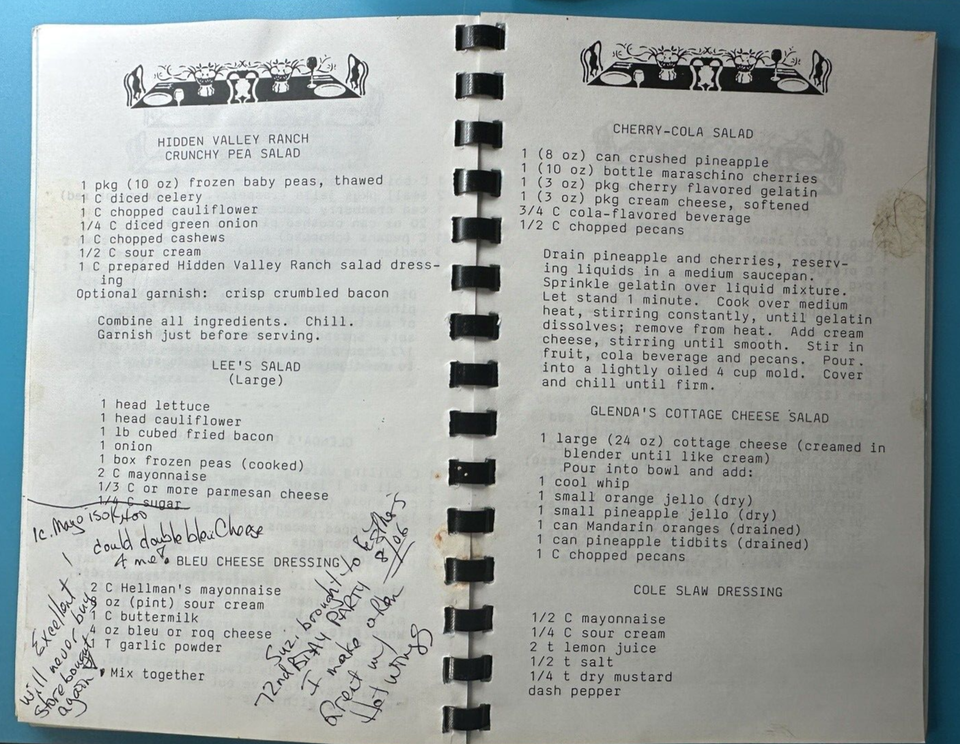 HIDDEN VALLEY RANCH
CRUNCHY PEA SALAD
1 pkg (10 oz) frozen baby peas, thawed
1 C diced celery
1 C chopped cauliflower
1/4 C diced green onion
1 C chopped cashews
1/2 C sour cream
1 C prepared Hidden Valley Ranch salad dress-
ing
Optional garnish: crisp crumbled bacon
Combine all ingredients. Chill.
Garnish just before serving.
LEE'S SALAD
(Large)
1 head lettuce
1 head cauliflower
1 lb cubed fried bacon
1 onion
1 box frozen peas (cooked)
2 C mayonnaise
1/3 C or more parmesan cheese
1/4 C sugar
1c. Mayo is ok too
could double bleu Cheese
4 me!
BLEU CHEESE DRESSING
2 C Hellman's mayonnaise
oz (pint) sour cream
1 C buttermilk
4 oz bleu or roq cheese
T garlic powder
Mix together
Excellent!
will never buy
store bought
again
Suzi brought to Esther's
72nd Bday PARTY 8/06
I make often
Great w/
Hot wings
CHERRY-COLA SALAD
1 (8 oz) can crushed pineapple
1 (10 oz) bottle maraschino cherries
1 (3 oz) pkg cherry flavored gelatin
1 (3 oz) pkg cream cheese, softened
3/4 C cola-flavored beverage
1/2 C chopped pecans
Drain pineapple and cherries, reserv-
ing liquids in a medium saucepan.
Sprinkle gelatin over liquid mixture.
Let stand 1 minute. Cook over medium
heat, stirring constantly, until gelatin
dissolves; remove from heat. Add cream
cheese, stirring until smooth. Stir in
fruit, cola beverage and pecans. Pour.
into a lightly oiled 4 cup mold. Cover
and chill until firm.
GLENDA'S COTTAGE CHEESE SALAD
1 large (24 oz) cottage cheese (creamed in
blender until like cream)
Pour into bowl and add:
1 cool whip
1 small orange jello (dry)
1 small pineapple jello (dry)
1 can Mandarin oranges (drained)
1 can pineapple tidbits (drained)
1 C chopped pecans
COLE SLAW DRESSING
1/2 C mayonnaise
1/4 C sour cream
2 t lemon juice
1/2 t salt
1/4 t dry mustard
dash pepper